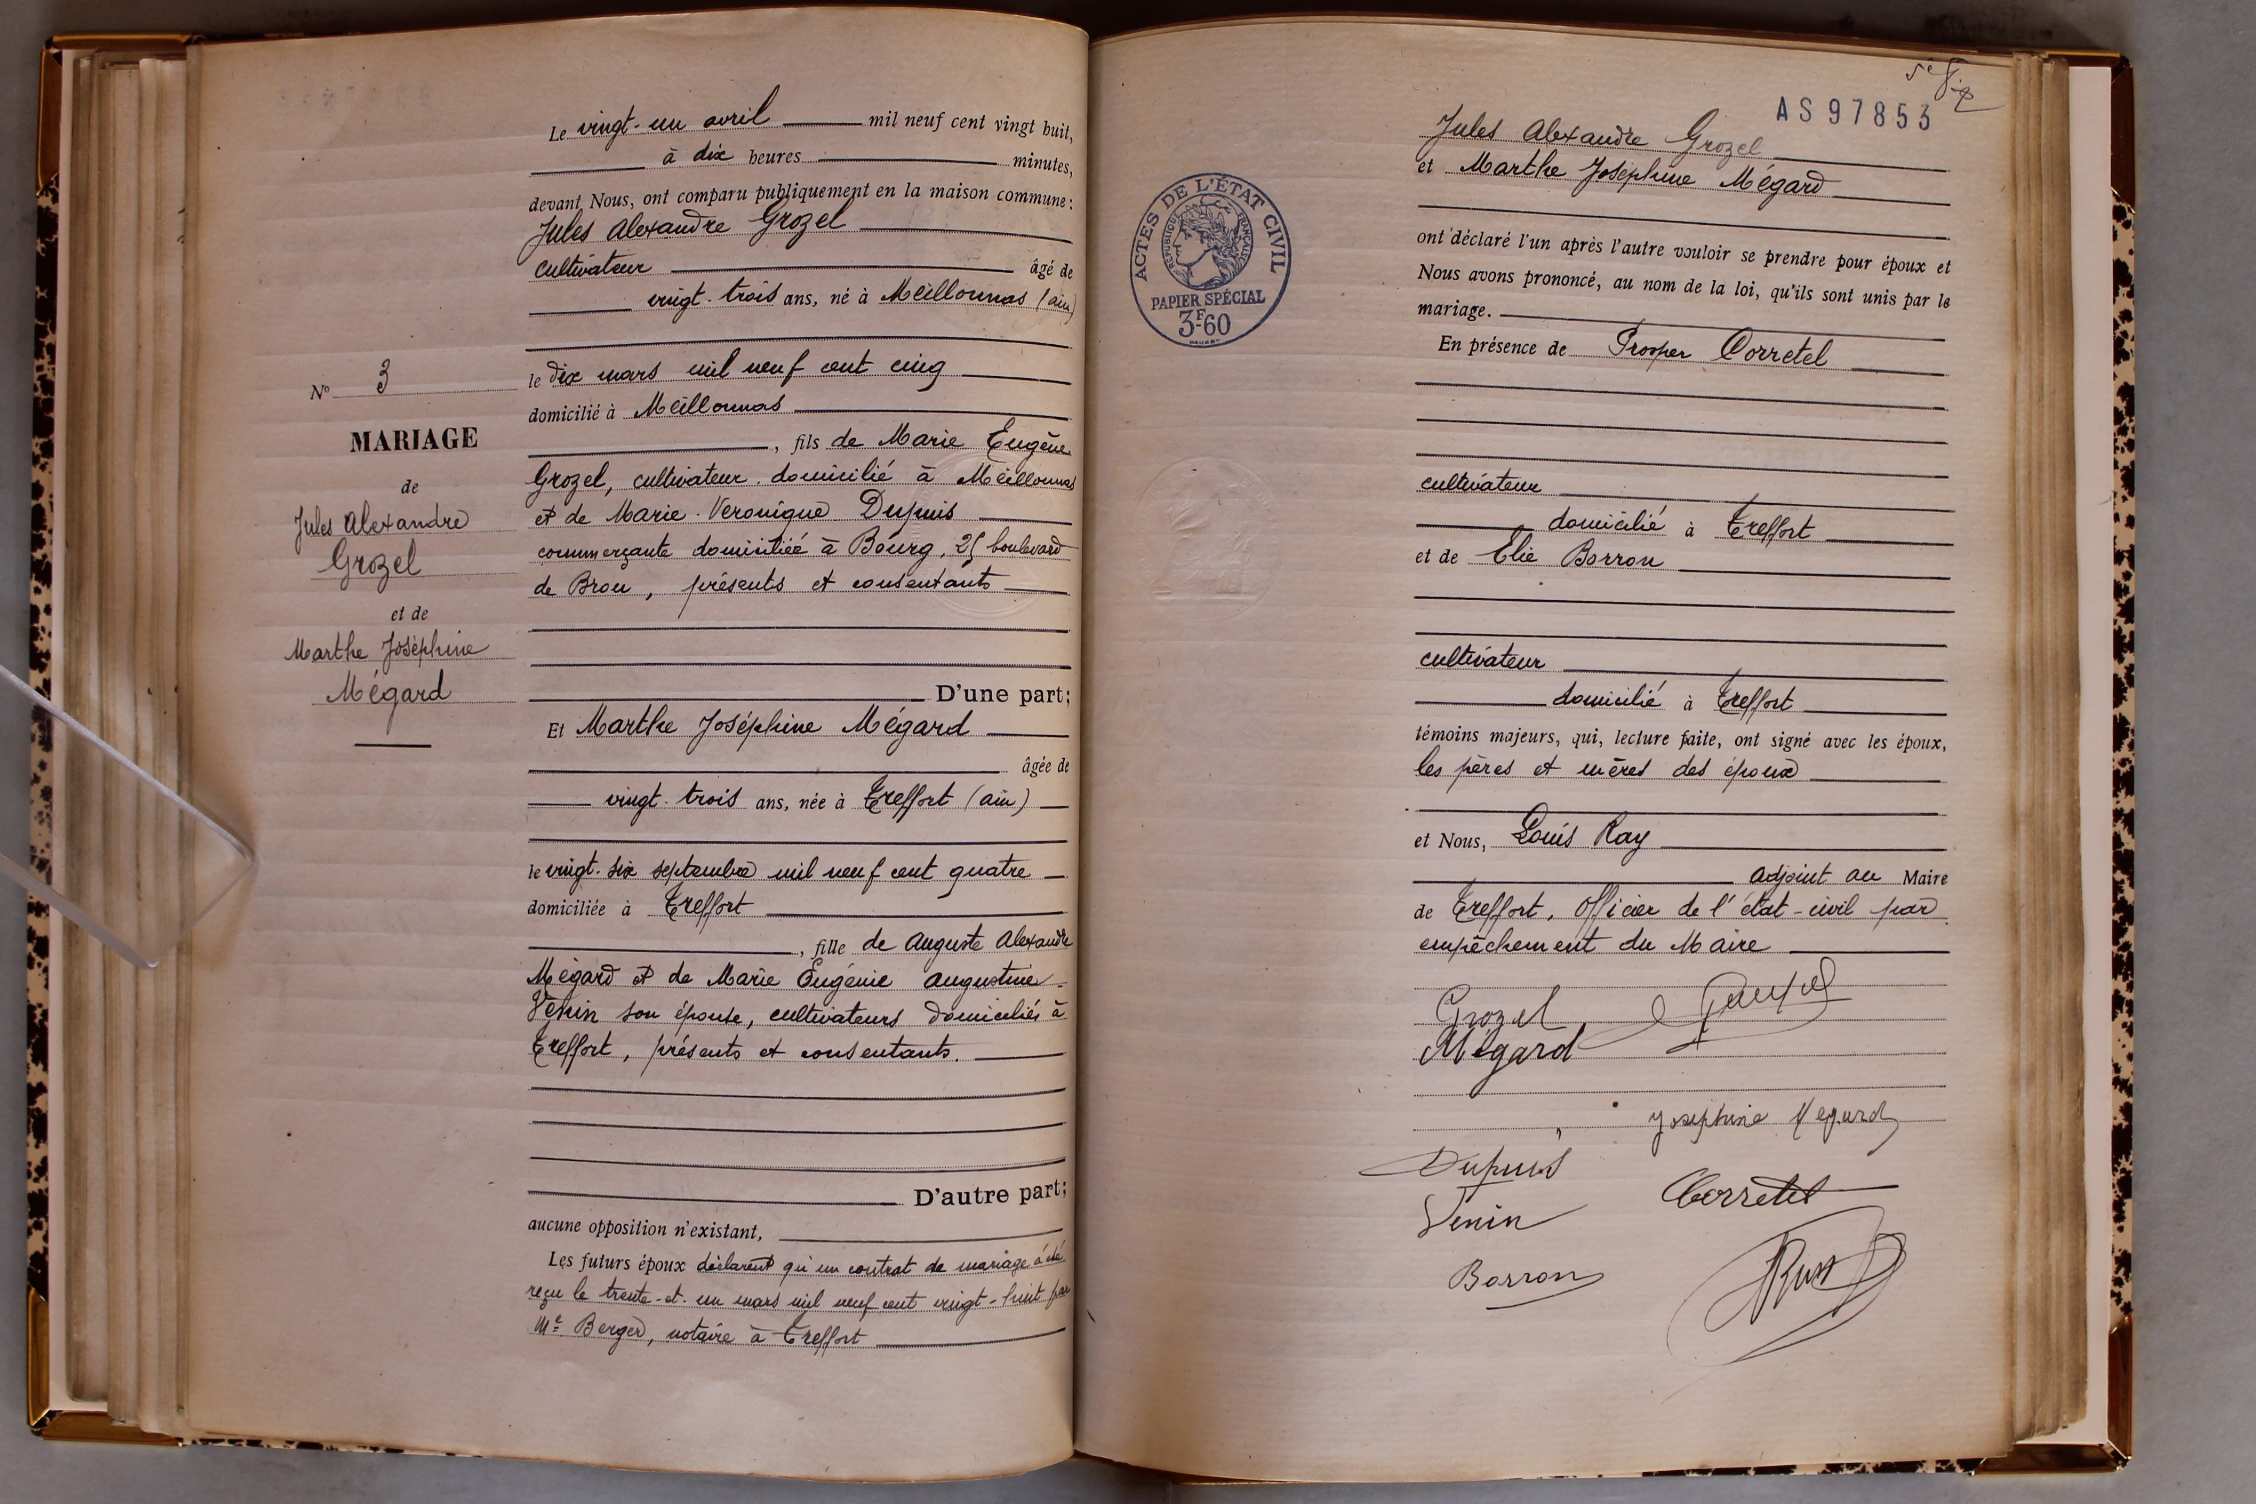 Le vingt-un avril mil neuf cent vingt huit,
à dix heures minutes,
devant Nous, ont comparu publiquement en la maison commune :
Jules Alexandre Grozel
cultivateur âgé de
vingt-trois ans, né à Meillonnas (ain)
le dix mars mil neuf cent cinq
domicilié à Meillonnas
, fils de Marie Eugène
Grozel, cultivateur domicilié à Meillonnas
et de Marie-Véronique Dupuis
commerçante domiciliée à Bourg, 25 boulevard
de Brou, présents et consentants
D'une part;
Et Marthe Joséphine Mégard
âgée de
vingt-trois ans, née à Treffort (ain)
le vingt-six septembre mil neuf cent quatre
domiciliée à Treffort
, fille de Auguste Alexandre
Mégard et de Marie Eugénie Augustine
Venin son épouse, cultivateurs domiciliés à
Treffort, présents et consentants.
D'autre part;
aucune opposition n'existant,
Les futurs époux déclarent qu'un contrat de mariage a été
reçu le trente-et-un mars mil neuf cent vingt-huit par
Me Berger, notaire à Treffort
No 3
MARIAGE
de
Jules Alexandre
Grozel
et de
Marthe Joséphine
Mégard
AS97853
Jules Alexandre Grozel
et Marthe Joséphine Mégard
ont déclaré l'un après l'autre vouloir se prendre pour époux et
Nous avons prononcé, au nom de la loi, qu'ils sont unis par le
mariage.
En présence de Prosper Corretel
cultivateur
domicilié à Treffort
et de Elie Borron
cultivateur
domicilié à Treffort
témoins majeurs, qui, lecture faite, ont signé avec les époux,
les pères et mères des époux
et Nous, Louis Ray
adjoint au Maire
de Treffort, Officier de l'état-civil par
empêchement du Maire
Grozel
Mégard
Josephine Megard
Dupuis
Corretel
Venin
Borron
ACTES DE L'ÉTAT CIVIL
RÉPUBLIQUE FRANÇAISE
PAPIER SPÉCIAL
3F60